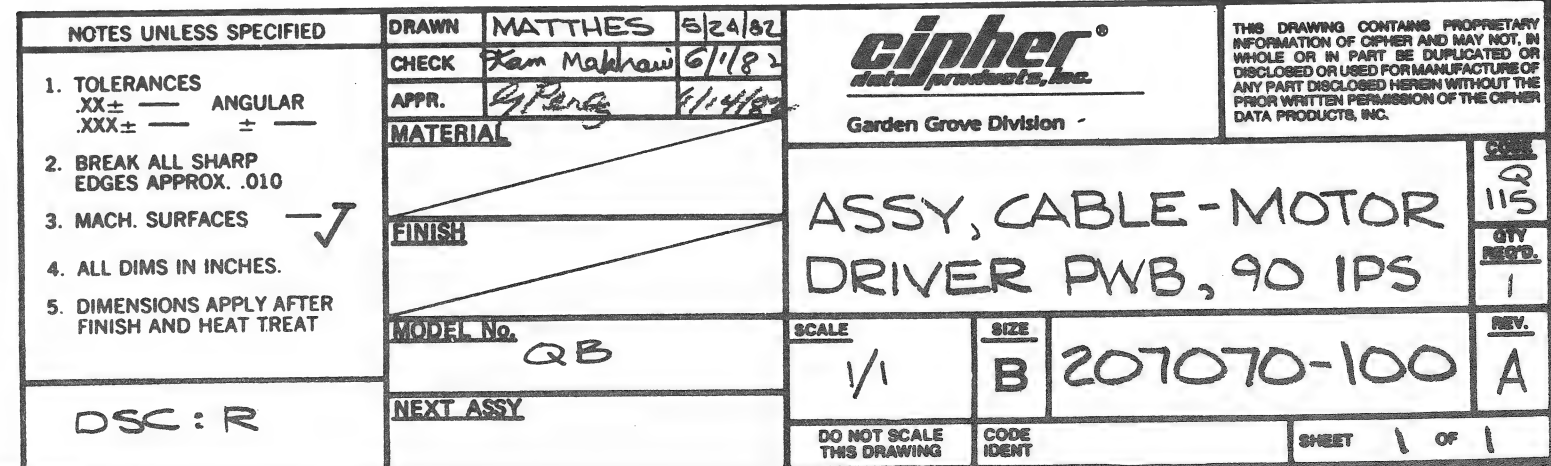 NOTES UNLESS SPECIFIED
1. TOLERANCES
.XX± — ANGULAR
.XXX± — ± —
2. BREAK ALL SHARP
EDGES APPROX. .010
3. MACH. SURFACES —√
4. ALL DIMS IN INCHES.
5. DIMENSIONS APPLY AFTER
FINISH AND HEAT TREAT
DSC: R
DRAWN MATTHES 5/24/82
CHECK 6/1/82
APPR.
MATERIAL
FINISH
MODEL No.
QB
NEXT ASSY
cipher®
data products, inc.
Garden Grove Division
THIS DRAWING CONTAINS PROPRIETARY
INFORMATION OF CIPHER AND MAY NOT, IN
WHOLE OR IN PART BE DUPLICATED OR
DISCLOSED OR USED FOR MANUFACTURE OF
ANY PART DISCLOSED HEREIN WITHOUT THE
PRIOR WRITTEN PERMISSION OF THE CIPHER
DATA PRODUCTS, INC.
ASSY, CABLE-MOTOR
DRIVER PWB, 90 IPS
CODE
Q
115
QTY
REQ'D.
1
SCALE
1/1
SIZE
B
207070-100
REV.
A
DO NOT SCALE
THIS DRAWING
CODE
IDENT
SHEET 1 OF 1